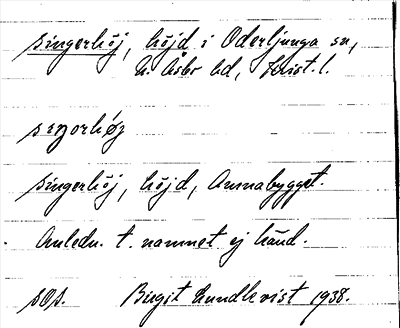 Singerhöj, höjd i Oderljunga sn,
N. Åsbo hd, Krist. l.
siŋərhøj
Singerhöj, höjd, Annabygget.
Anledn. t. namnet ej känd.
SOA. Birgit Lundkvist 1938.